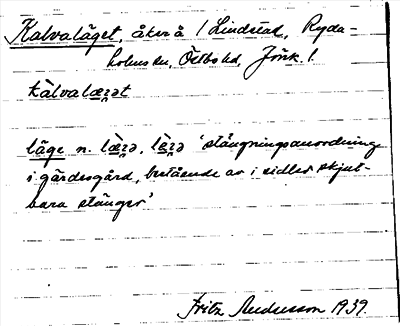 Kalvaläget, åker å / Lindstad, Ryda-
holms sn, Östbo hd, Jönk. l.
kàlvalæ̀gət
läge n. læ̀gə, lè̱gə 'stängningsanordning
i gärdesgård, bestående av i sidled skjut-
bara stänger'
Fritz Andersson 1939.